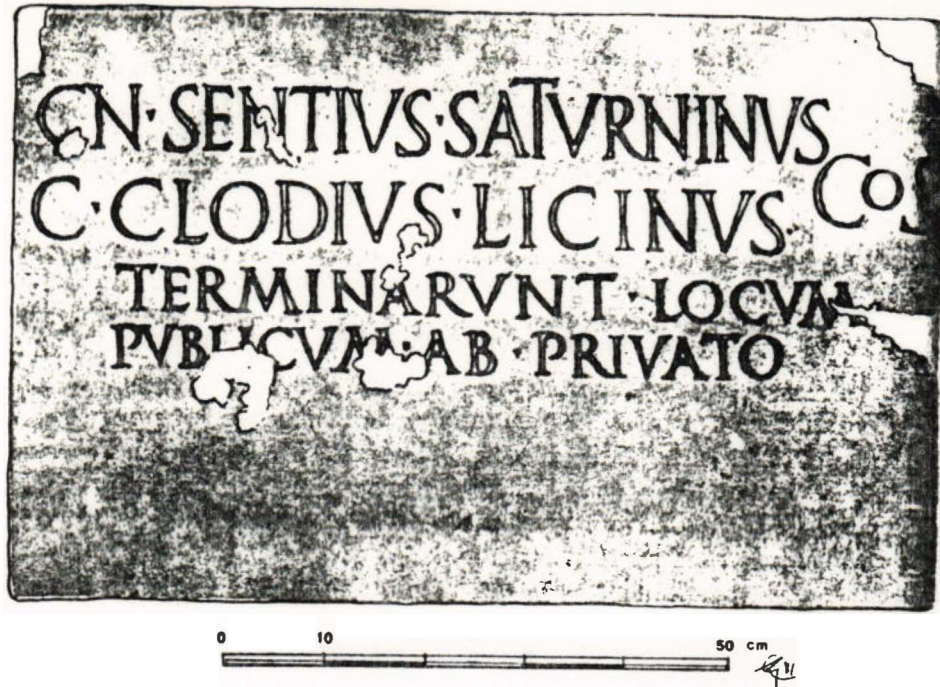 CN · SENTIVS · SATVRNINVS
C · CLODIVS · LICINVS COS
TERMINARVNT · LOCVM
PVBLICVM · AB · PRIVATO
0 10 50 cm